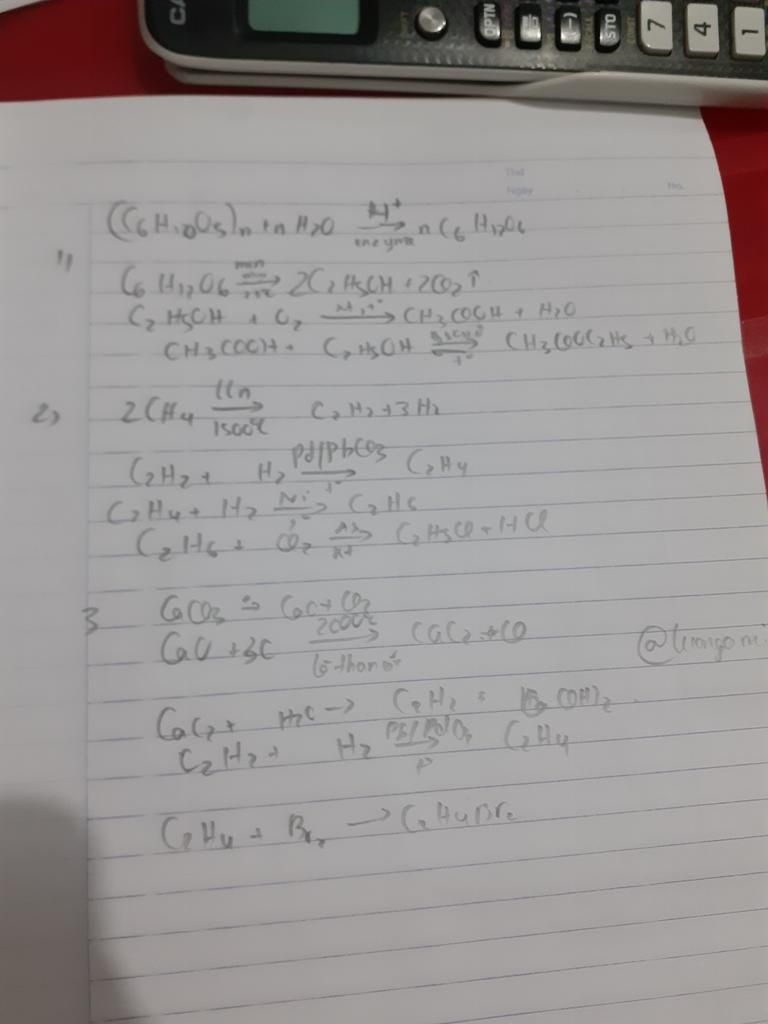 CA
OPTN
(-)
STO
7
4
1
Thứ
Ngày No.
1) (C6H10O5)n + nH2O H+ → enzyme nC6H12O6
C6H12O6 men → 2C2H5OH + 2CO2↑
C2H5OH + O2 → CH3COOH + H2O
CH3COOH + C2H5OH ⇌ CH3COOC2H5 + H2O
2) 2CH4 lln → 1500°C C2H2 + 3H2
C2H2 + H2 Pd/PbCO3 → t° C2H4
C2H4 + H2 Ni → t° C2H6
C2H6 + Cl2 as → C2H5Cl + HCl
3 CaCO3 → CaO + CO2
CaO + 3C 2000°C → lò than CaC2 + CO
CaC2 + H2O → C2H2 + (OH)2
C2H2 + H2 → C2H4
C2H4 + Br2 → C2H4Br2